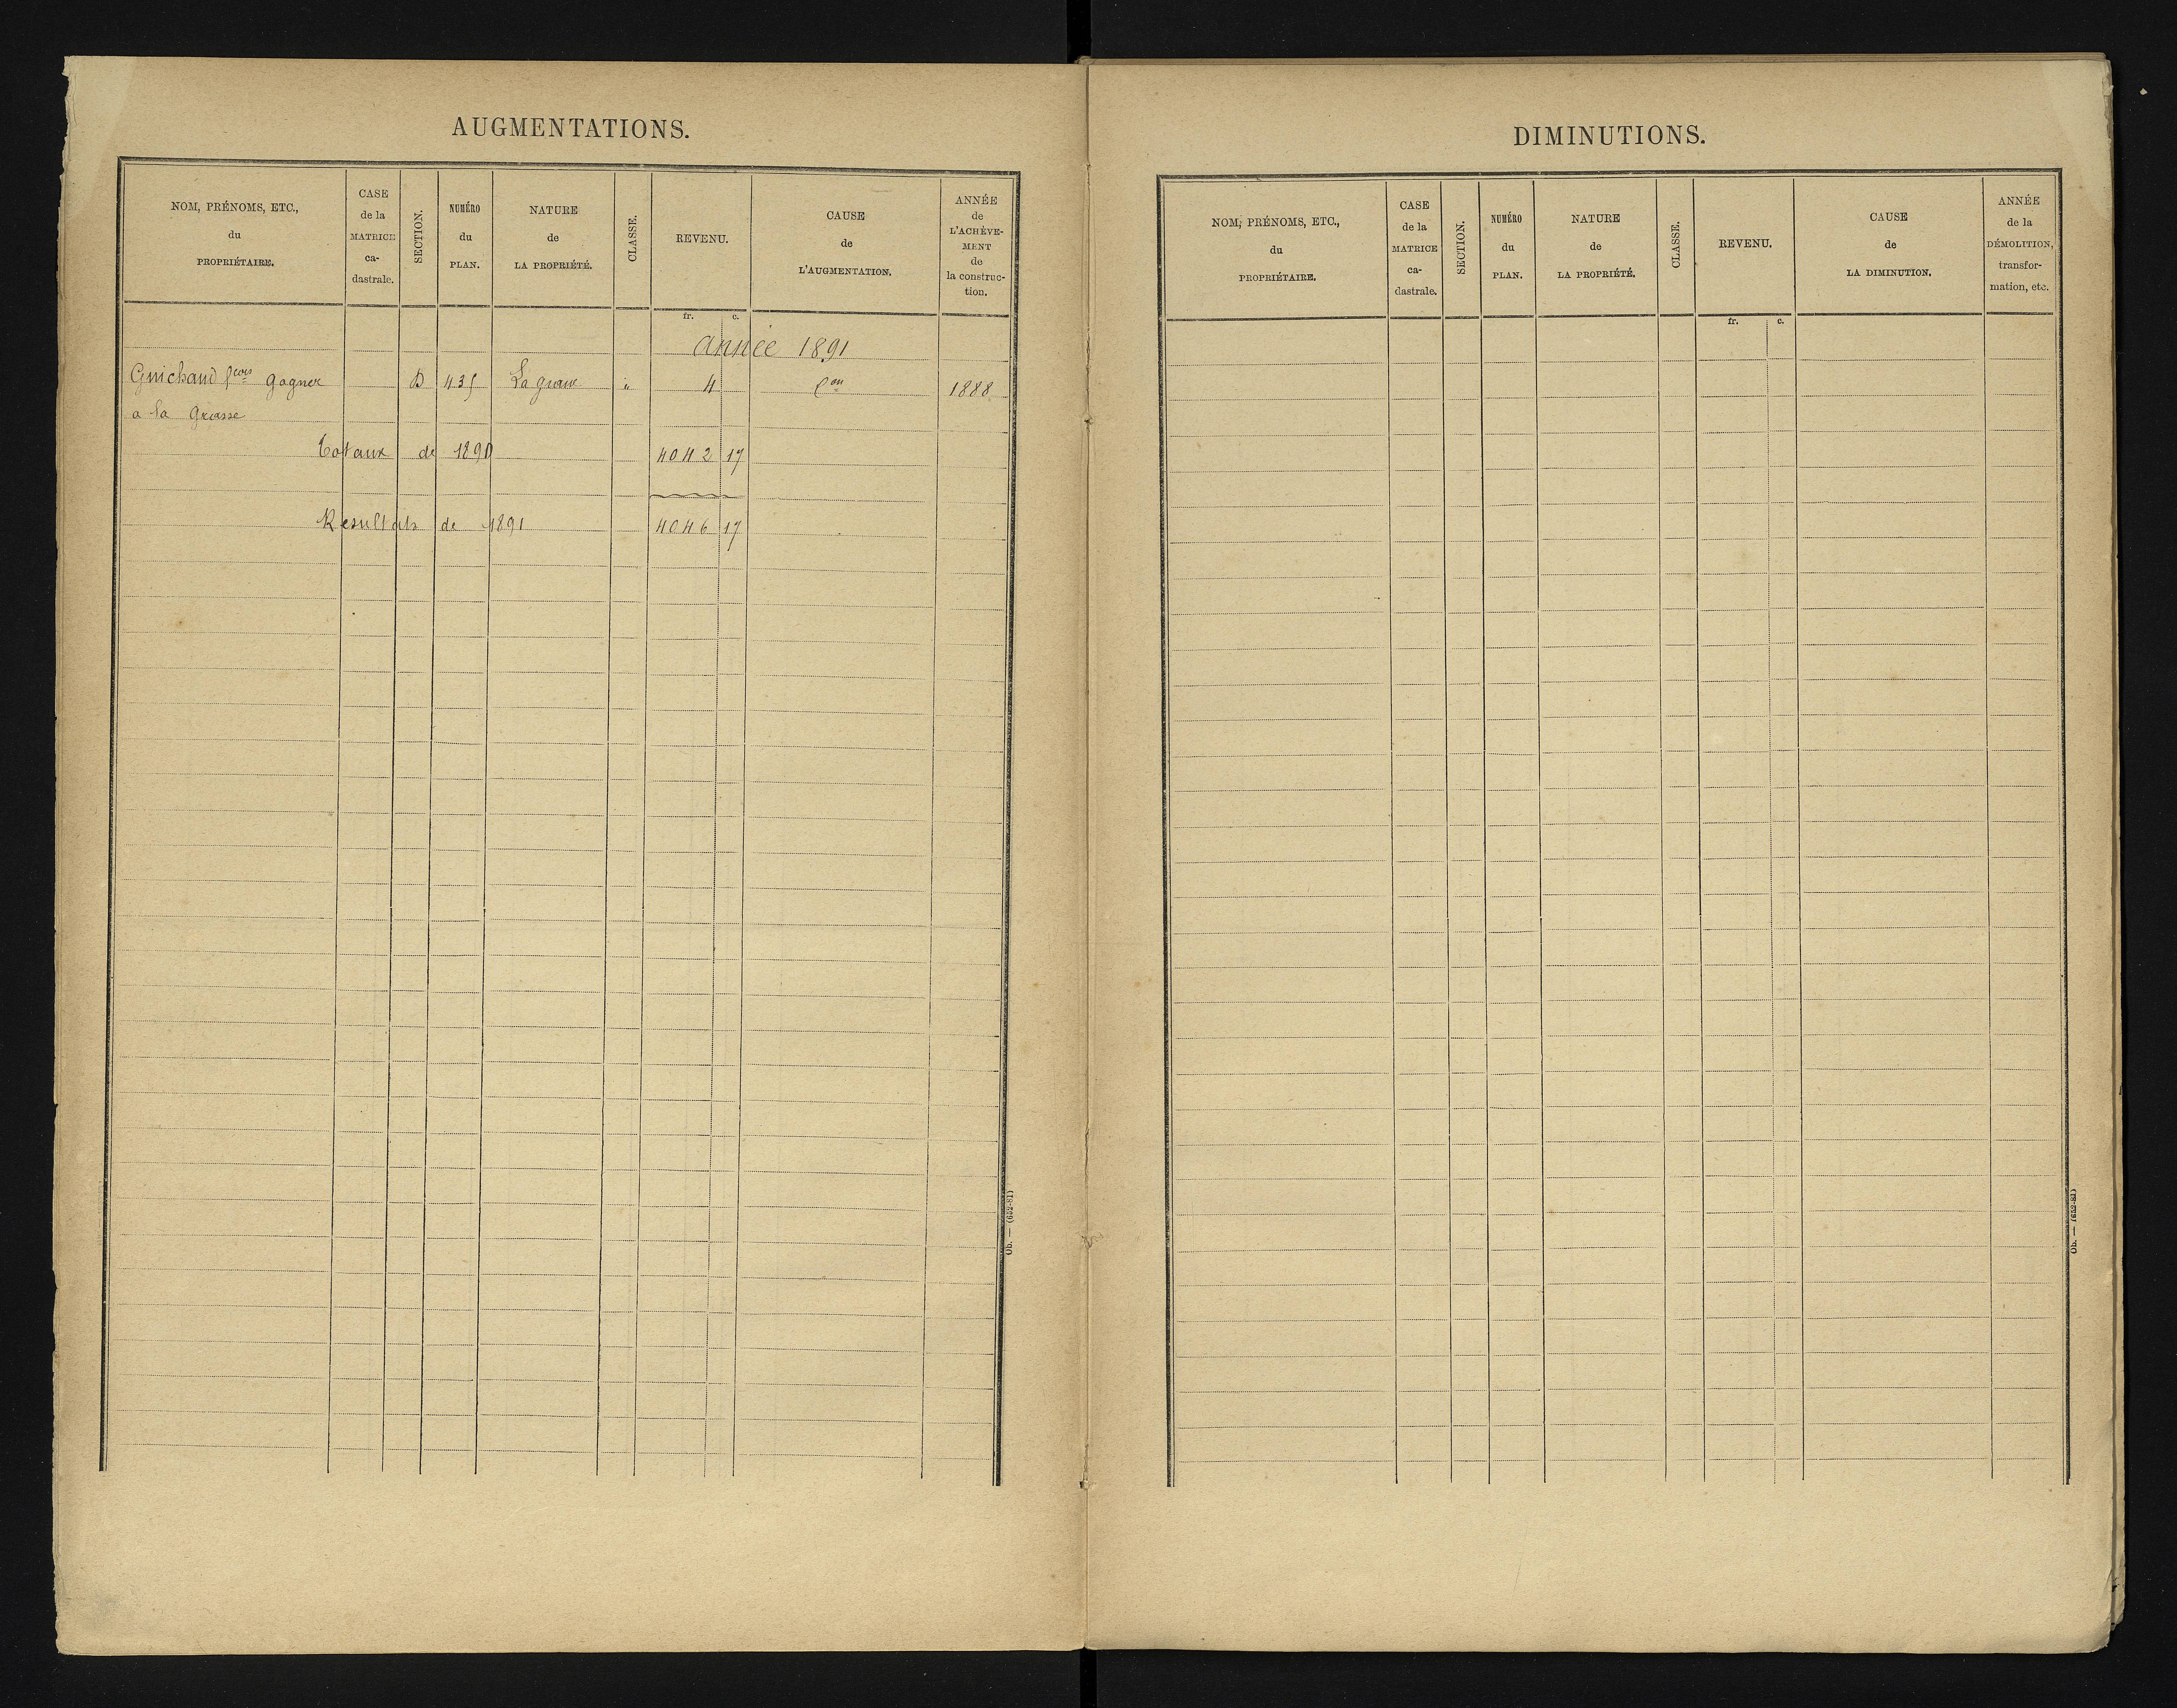 AUGMENTATIONS.
NOM, PRÉNOMS, ETC.,
du
PROPRIÉTAIRE.
CASE
de la
MATRICE
ca-
dastrale.
SECTION.
NUMÉRO
du
PLAN.
NATURE
de
LA PROPRIÉTÉ.
CLASSE.
REVENU.
CAUSE
de
L'AUGMENTATION.
ANNÉE
de
L'ACHÈVE-
MENT
de
la construc-
tion.
fr. c.
Année 1891
Guichaud D 435 4 1888
a la Grasse
Totaux de 1890 4042 17
Résultats de 1891 4046 17
Ob. — (652-81)
DIMINUTIONS.
NOM, PRÉNOMS, ETC.,
du
PROPRIÉTAIRE.
CASE
de la
MATRICE
ca-
dastrale.
SECTION.
NUMÉRO
du
PLAN.
NATURE
de
LA PROPRIÉTÉ.
CLASSE.
REVENU.
CAUSE
de
LA DIMINUTION.
ANNÉE
de la
DÉMOLITION,
transfor-
mation, etc.
fr. c.
Ob. — (652-81)